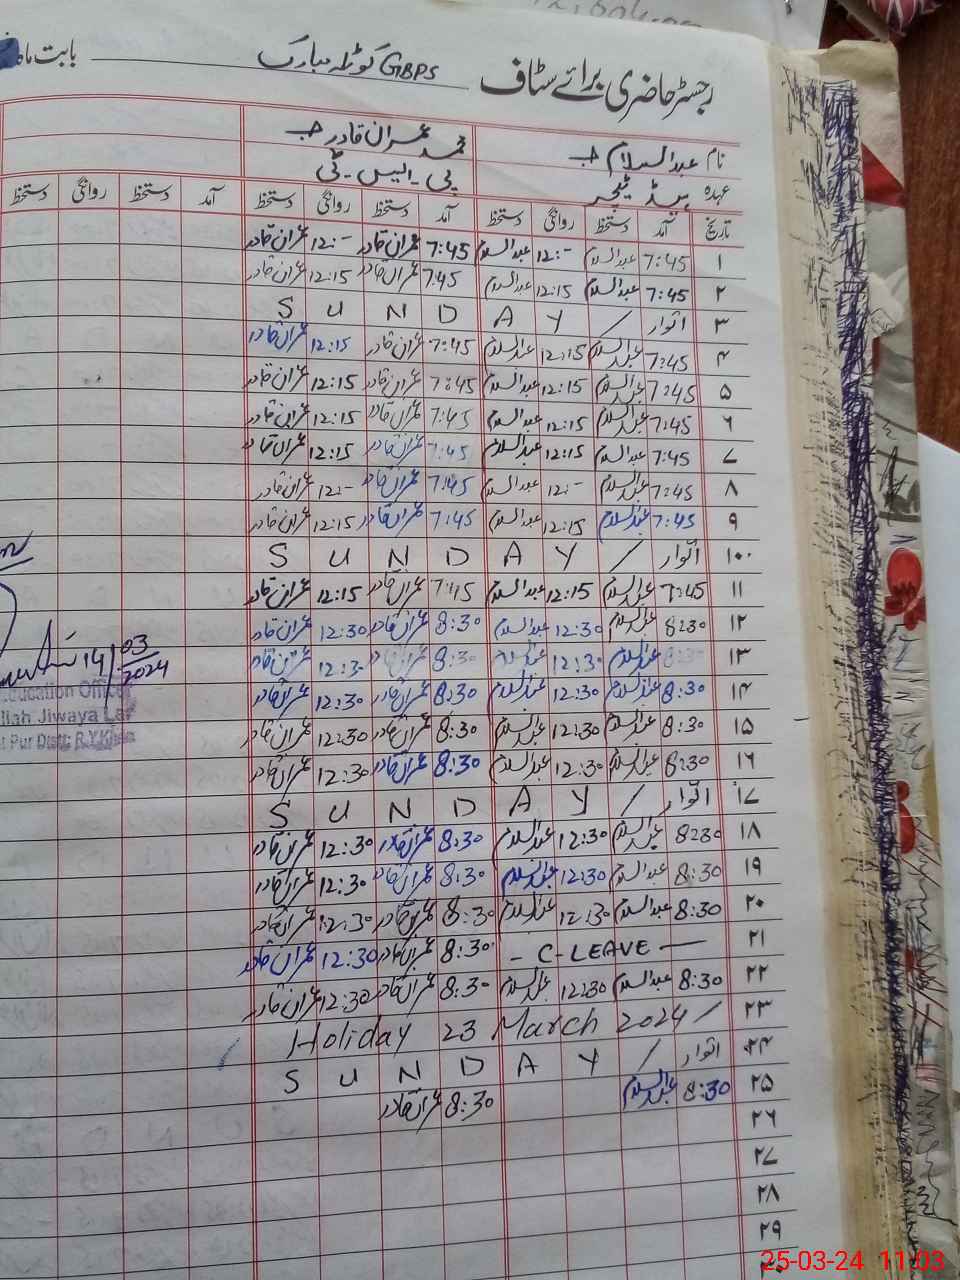 رجسٹر حاضری برائے سٹاف GBPS کوٹلہ مبارک بابت ماہ
نام عبدالسلام محمد عمران قادر
عہدہ ہیڈ ٹیچر پی۔ایس۔ٹی
تاریخ آمد دستخط روانگی دستخط آمد دستخط روانگی دستخط آمد دستخط روانگی دستخط
۱ 7:45 عبدالسلام 12:- عبدالسلام 7:45 عمران قادر 12:- عمران قادر
۲ 7:45 عبدالسلام 12:15 عبدالسلام 7:45 عمران قادر 12:15 عمران قادر
۳ اتوار / S U N D A Y
۴ 7:45 عبدالسلام 12:15 عبدالسلام 7:45 عمران قادر 12:15 عمران قادر
۵ 7:45 عبدالسلام 12:15 عبدالسلام 7:45 عمران قادر 12:15 عمران قادر
۶ 7:45 عبدالسلام 12:15 عبدالسلام 7:45 عمران قادر 12:15 عمران قادر
۷ 7:45 عبدالسلام 12:15 عبدالسلام 7:45 عمران قادر 12:15 عمران قادر
۸ 7:45 عبدالسلام 12:- عبدالسلام 7:45 عمران قادر 12:- عمران قادر
۹ 7:45 عبدالسلام 12:15 عبدالسلام 7:45 عمران قادر 12:15 عمران قادر
۱۰ اتوار / S U N D A Y
۱۱ 7:45 عبدالسلام 12:15 عبدالسلام 7:45 عمران قادر 12:15 عمران قادر
۱۲ 8:30 عبدالسلام 12:30 عبدالسلام 8:30 عمران قادر 12:30 عمران قادر
۱۳ 8:30 عبدالسلام 12:30 عبدالسلام 8:30 عمران قادر 12:30 عمران قادر
۱۴ 8:30 عبدالسلام 12:30 عبدالسلام 8:30 عمران قادر 12:30 عمران قادر
۱۵ 8:30 عبدالسلام 12:30 عبدالسلام 8:30 عمران قادر 12:30 عمران قادر
۱۶ 8:30 عبدالسلام 12:30 عبدالسلام 8:30 عمران قادر 12:30 عمران قادر
۱۷ اتوار / S U N D A Y
۱۸ 8:30 عبدالسلام 12:30 عبدالسلام 8:30 عمران قادر 12:30 عمران قادر
۱۹ 8:30 عبدالسلام 12:30 عبدالسلام 8:30 عمران قادر 12:30 عمران قادر
۲۰ 8:30 عبدالسلام 12:30 عبدالسلام 8:30 عمران قادر 12:30 عمران قادر
۲۱ - C-LEAVE - 8:30 عمران قادر 12:30 عمران قادر
۲۲ 8:30 عبدالسلام 12:30 عبدالسلام 8:30 عمران قادر 12:30 عمران قادر
۲۳ Holiday 23 March 2024 /
۲۴ اتوار / S U N D A Y
۲۵ 8:30 عبدالسلام 8:30 عمران قادر
۲۶
۲۷
۲۸
۲۹
14/03/2024
Education Officer
Jiwaya Lar
Pur Distt: R.Y.Khan
25-03-24 11:03